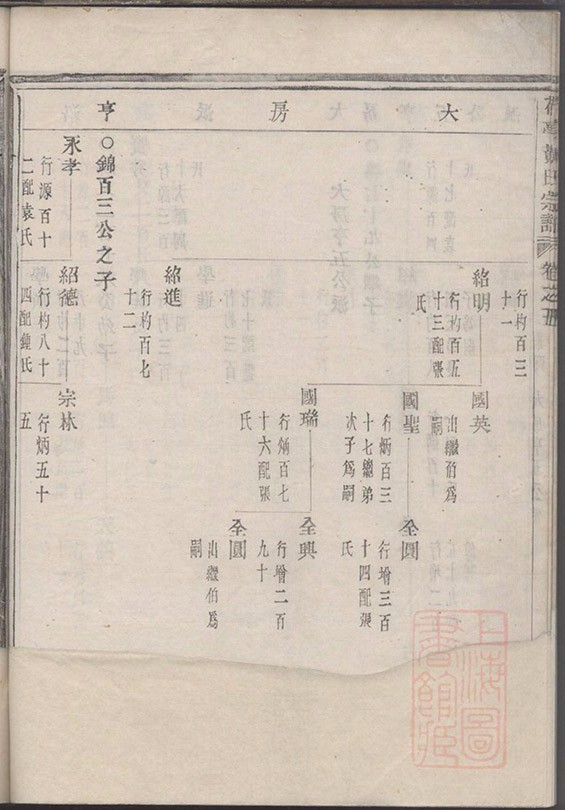 氏宗譜
卷之
大
房
亨
行杓百三
十一
紹明
行杓百五
十三配張
氏
國英
出繼伯爲
嗣
國聖
行炳百三
十七繼弟
次子爲嗣
全圓
行增三百
十四配張
氏
國瑞
行炳百七
十六配張
氏
全興
行增二百
九十
全圓
出繼伯爲
嗣
紹進
行杓百七
十二
○錦百三公之子
永孝
行源百十
二配袁氏
紹德
行杓八十
四配鍾氏
宗林
行炳五十
五
上海圖
書館藏